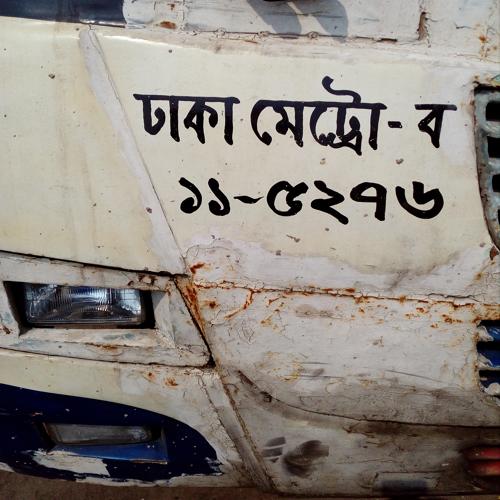 ঢাকা মেট্রো-ব
১১-৫২৭৬